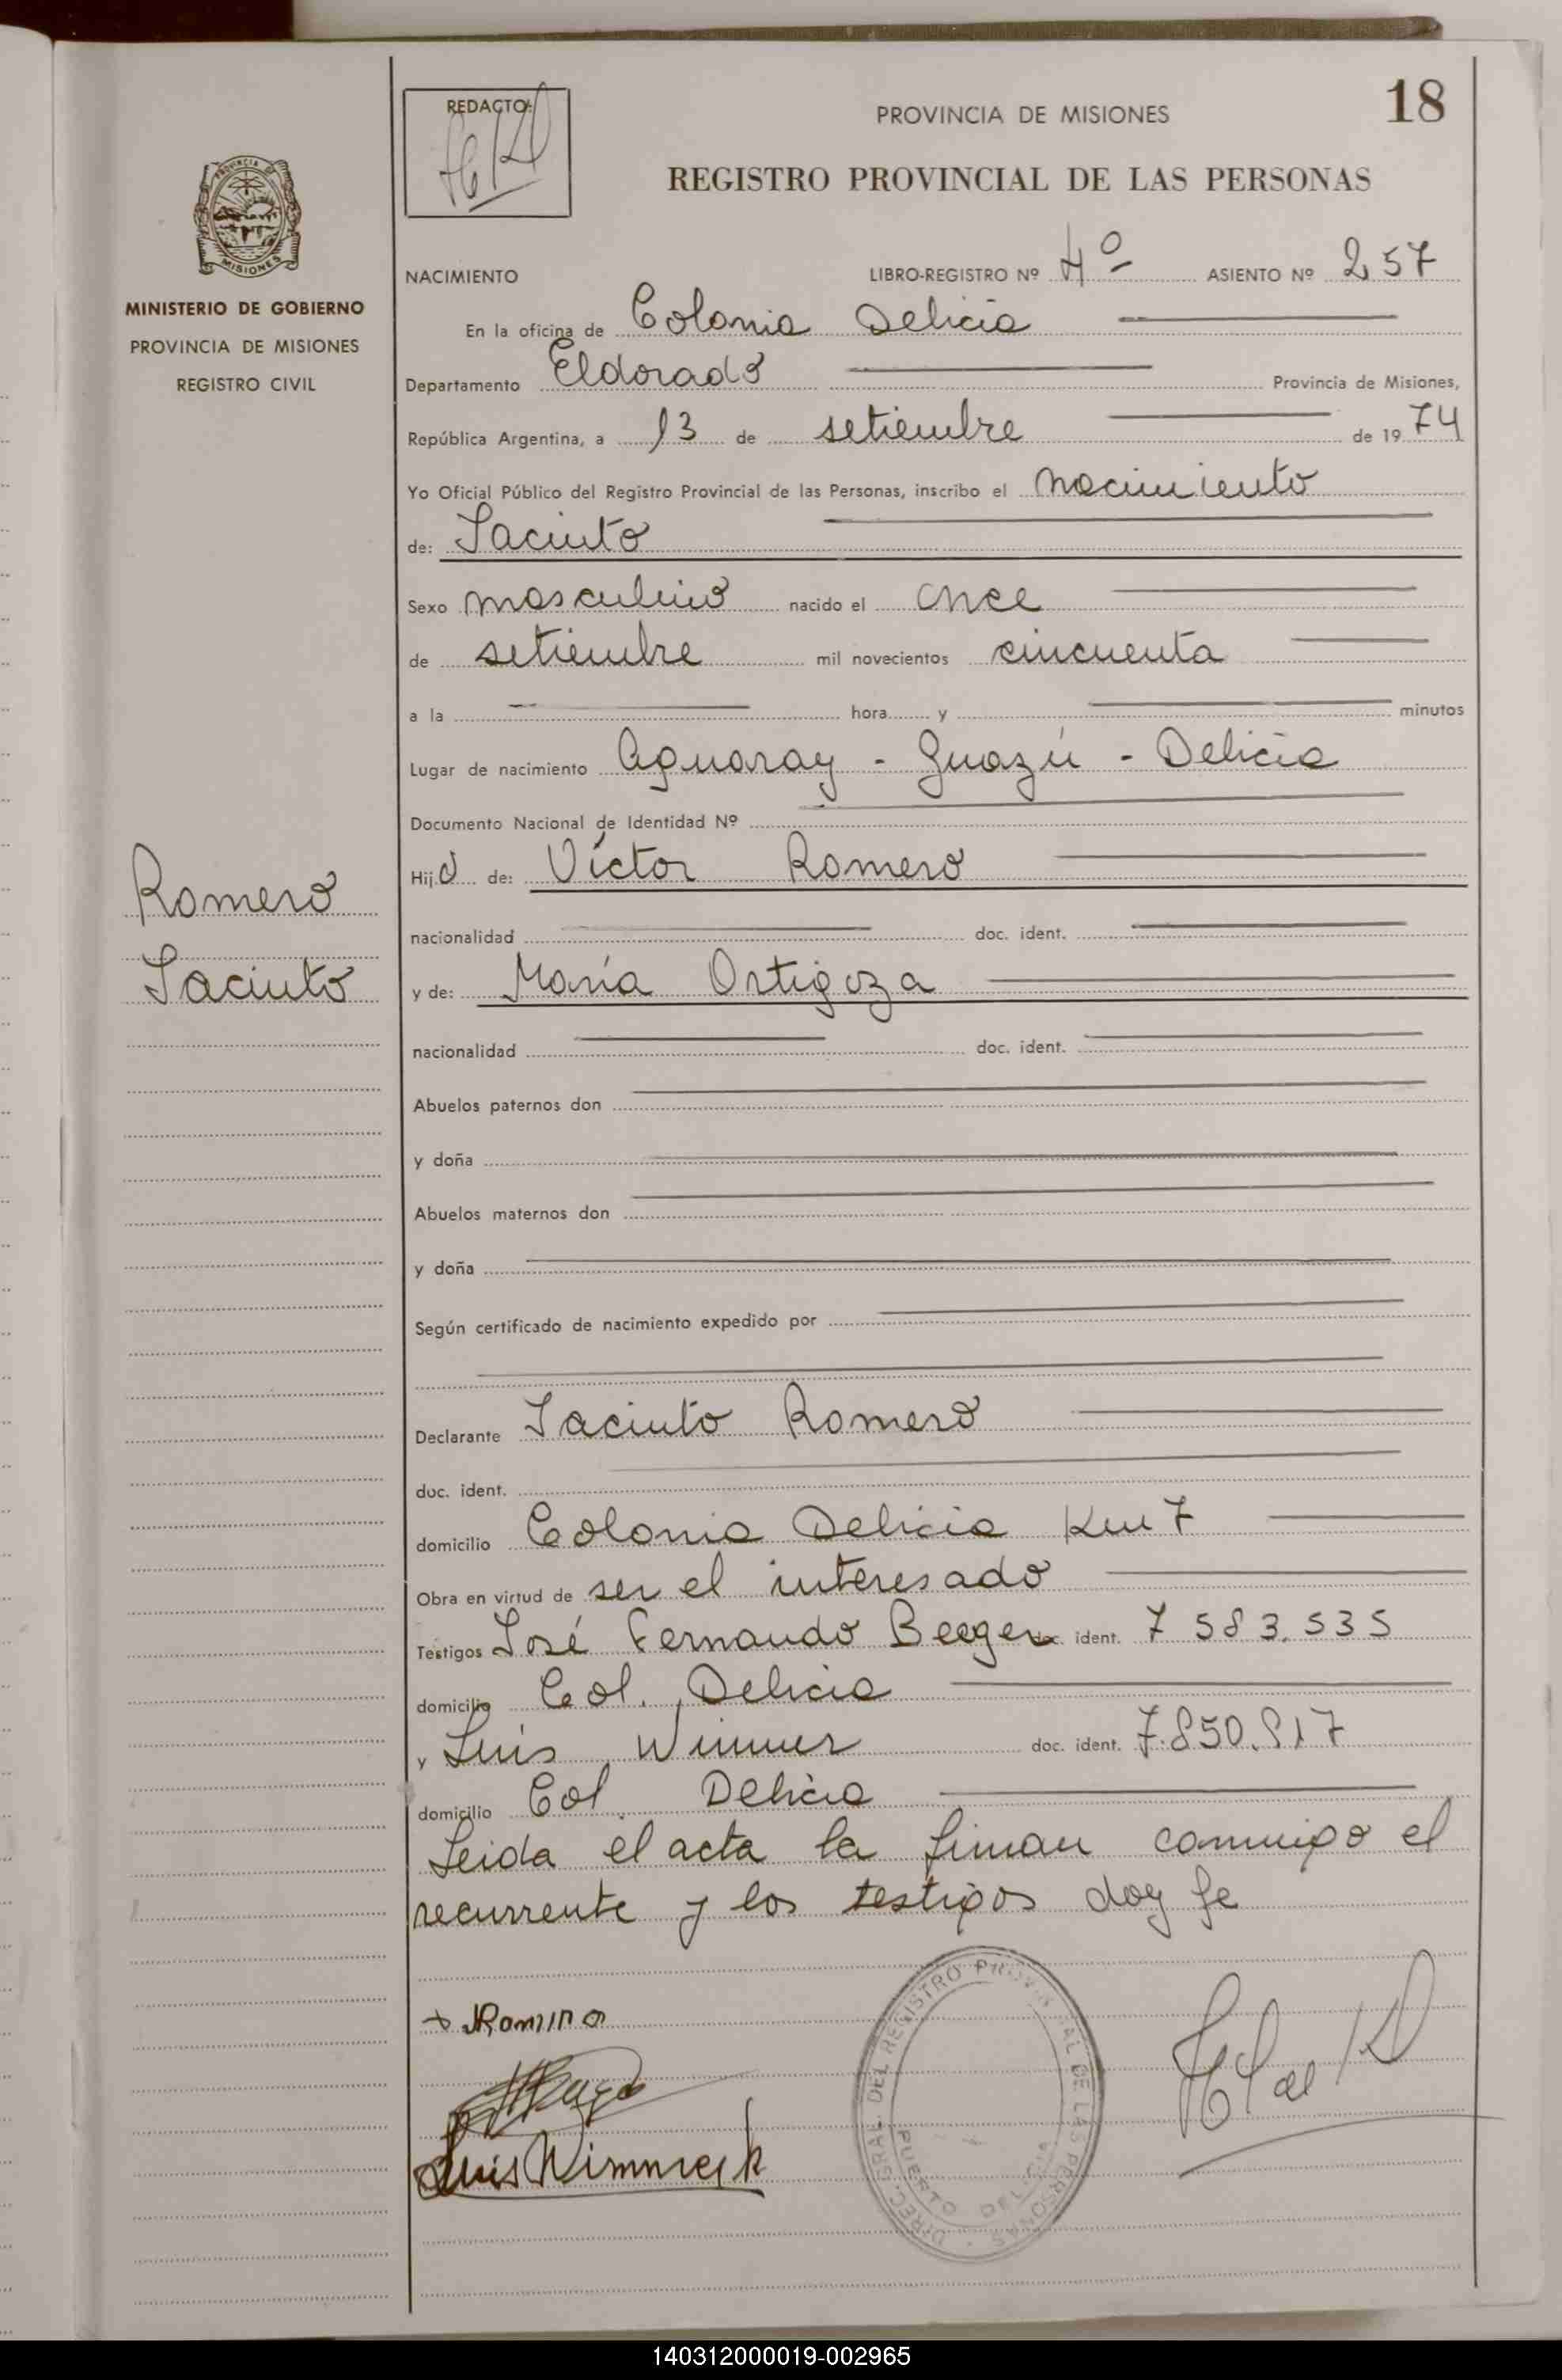 18
REDACTO:
PROVINCIA DE MISIONES
REGISTRO PROVINCIAL DE LAS PERSONAS
PROVINCIA DE
MISIONES
MINISTERIO DE GOBIERNO
PROVINCIA DE MISIONES
REGISTRO CIVIL
NACIMIENTO LIBRO-REGISTRO Nº 4º ASIENTO Nº 257
En la oficina de Colonia Delicia
Departamento Eldorado Provincia de Misiones,
República Argentina, a 13 de setiembre de 1974
Yo Oficial Público del Registro Provincial de las Personas, inscribo el nacimiento
de: Jacinto
Sexo masculino nacido el once
de setiembre mil novecientos cincuenta
a la hora y minutos
Lugar de nacimiento Aguaray - Guazú - Delicia
Documento Nacional de Identidad Nº
Hijo de: Víctor Romero
Romero
nacionalidad doc. ident.
Jacinto
y de: María Ortigoza
nacionalidad doc. ident.
Abuelos paternos don
y doña
Abuelos maternos don
y doña
Según certificado de nacimiento expedido por
Declarante Jacinto Romero
doc. ident.
domicilio Colonia Delicia Km 7
Obra en virtud de ser el interesado
Testigos José Fernando doc. ident. 7 583.535
domicilio Col. Delicia
y Luis doc. ident. 7.850.817
domicilio Col. Delicia
Leida el acta la firman conmigo el
recurrente y los testigos doy fe
Luis
DIREC. GRAL. DEL REGISTRO PROVINCIAL DE LAS PERSONAS
PUERTO DELICIA
140312000019-002965